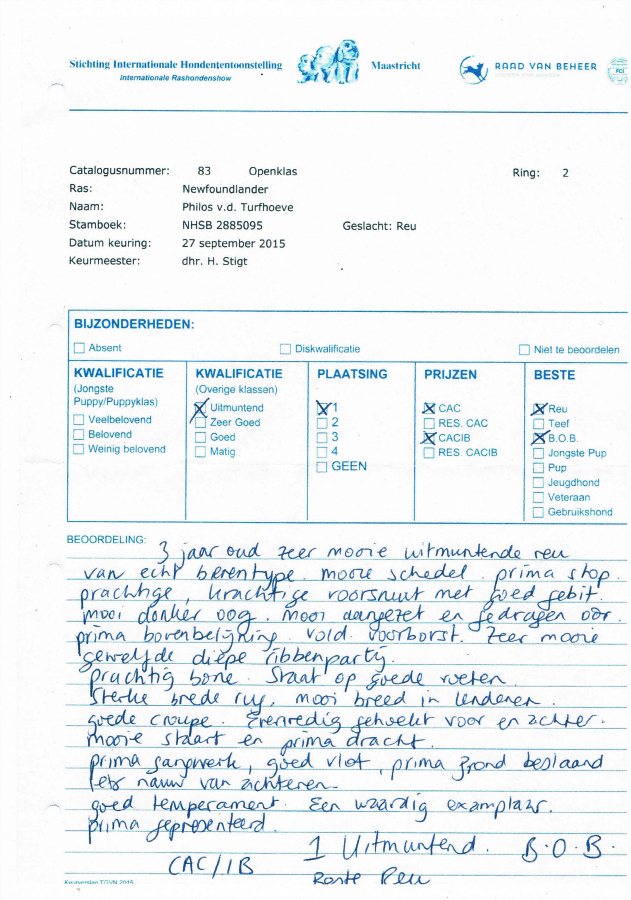 Stichting Internationale Hondententoonstelling Maastricht
Internationale Rashondenshow
RAAD VAN BEHEER
FCI
Catalogusnummer: 83 Openklas Ring: 2
Ras: Newfoundlander
Naam: Philos v.d. Turfhoeve
Stamboek: NHSB 2885095 Geslacht: Reu
Datum keuring: 27 september 2015
Keurmeester: dhr. H. Stigt
BIJZONDERHEDEN:
Absent Diskwalificatie Niet te beoordelen
KWALIFICATIE
(Jongste
Puppy/Puppyklas)
Veelbelovend
Belovend
Weinig belovend
KWALIFICATIE
(Overige klassen)
Uitmuntend
Zeer Goed
Goed
Matig
PLAATSING
1
2
3
4
GEEN
PRIJZEN
CAC
RES. CAC
CACIB
RES. CACIB
BESTE
Reu
Teef
B.O.B.
Jongste Pup
Pup
Jeugdhond
Veteraan
Gebruikshond
BEOORDELING:
3 jaar oud zeer mooie uitmuntende reu
van echt berentype. mooie schedel. prima stop.
prachtige, krachtige voorsnuit met goed gebit.
mooi donker oog. mooi aangezet en gedragen oor.
prima bovenbelijning. vold. voorborst. Zeer mooie
gewelfde diepe ribbenpartij.
prachtig bone. Staat op goede voeten.
Sterke brede rug, mooi breed in lendenen.
goede croupe. Evenredig gehoekt voor en achter.
mooie staart en prima dracht.
prima gangwerk, goed vlot, prima grond beslaand
Iets nauw van achteren.
goed temperament. Een waardig examplaar.
prima gepresenteerd.
1 Uitmuntend. B.O.B.
CAC/IB Beste Reu